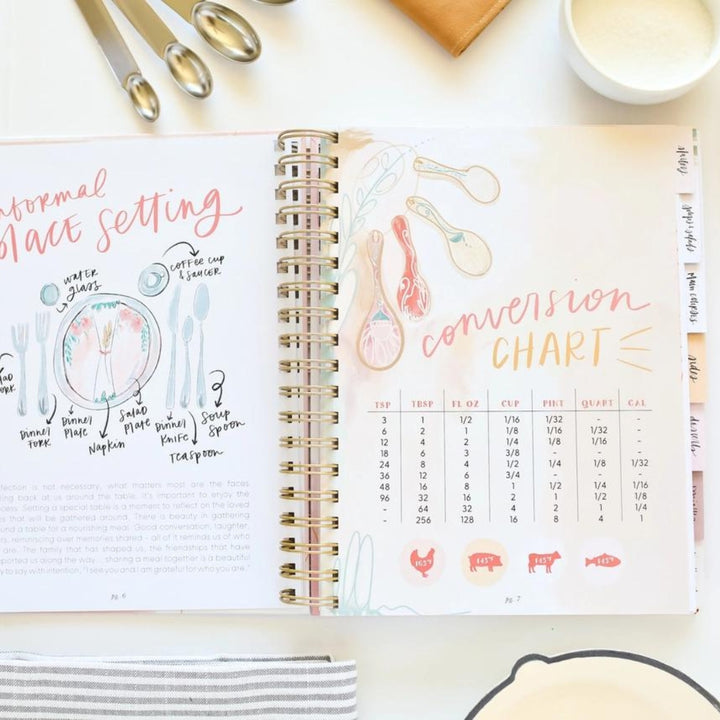 nformal
place Setting
water
glass
coffee cup
& saucer
salad
fork
Dinner
Fork
Dinner
Plate
Napkin
Salad
Plate
Dinner
Knife
Teaspoon
Soup
Spoon
fection is not necessary, what matters most are the faces
ing back at us around the table. It's important to enjoy the
cess. Setting a special table is a moment to reflect on the loved
s that will be gathered around. There is beauty in gathering
und a table for a nourishing meal. Good conversation, laughter,
rs, reminiscing over memories shared - all of it reminds us of who
are. The family that has shaped us, the friendships that have
ported us along the way ... sharing a meal together is a beautiful
y to say with intention, "I see you and I am grateful for who you are."
PG. 6
conversion
CHART
TSP TBSP FL OZ CUP PINT QUART GAL
3 1 1/2 1/16 1/32 - -
6 2 1 1/8 1/16 1/32 -
12 4 2 1/4 1/8 1/16 -
18 6 3 3/8 - - -
24 8 4 1/2 1/4 1/8 1/32
36 12 6 3/4 - - -
48 16 8 1 1/2 1/4 1/16
96 32 16 2 1 1/2 1/8
- 64 32 4 2 1 1/4
- 256 128 16 8 4 1
165° 145° 145° 145°
PG. 7
appetizers
Main courses
sides
desserts